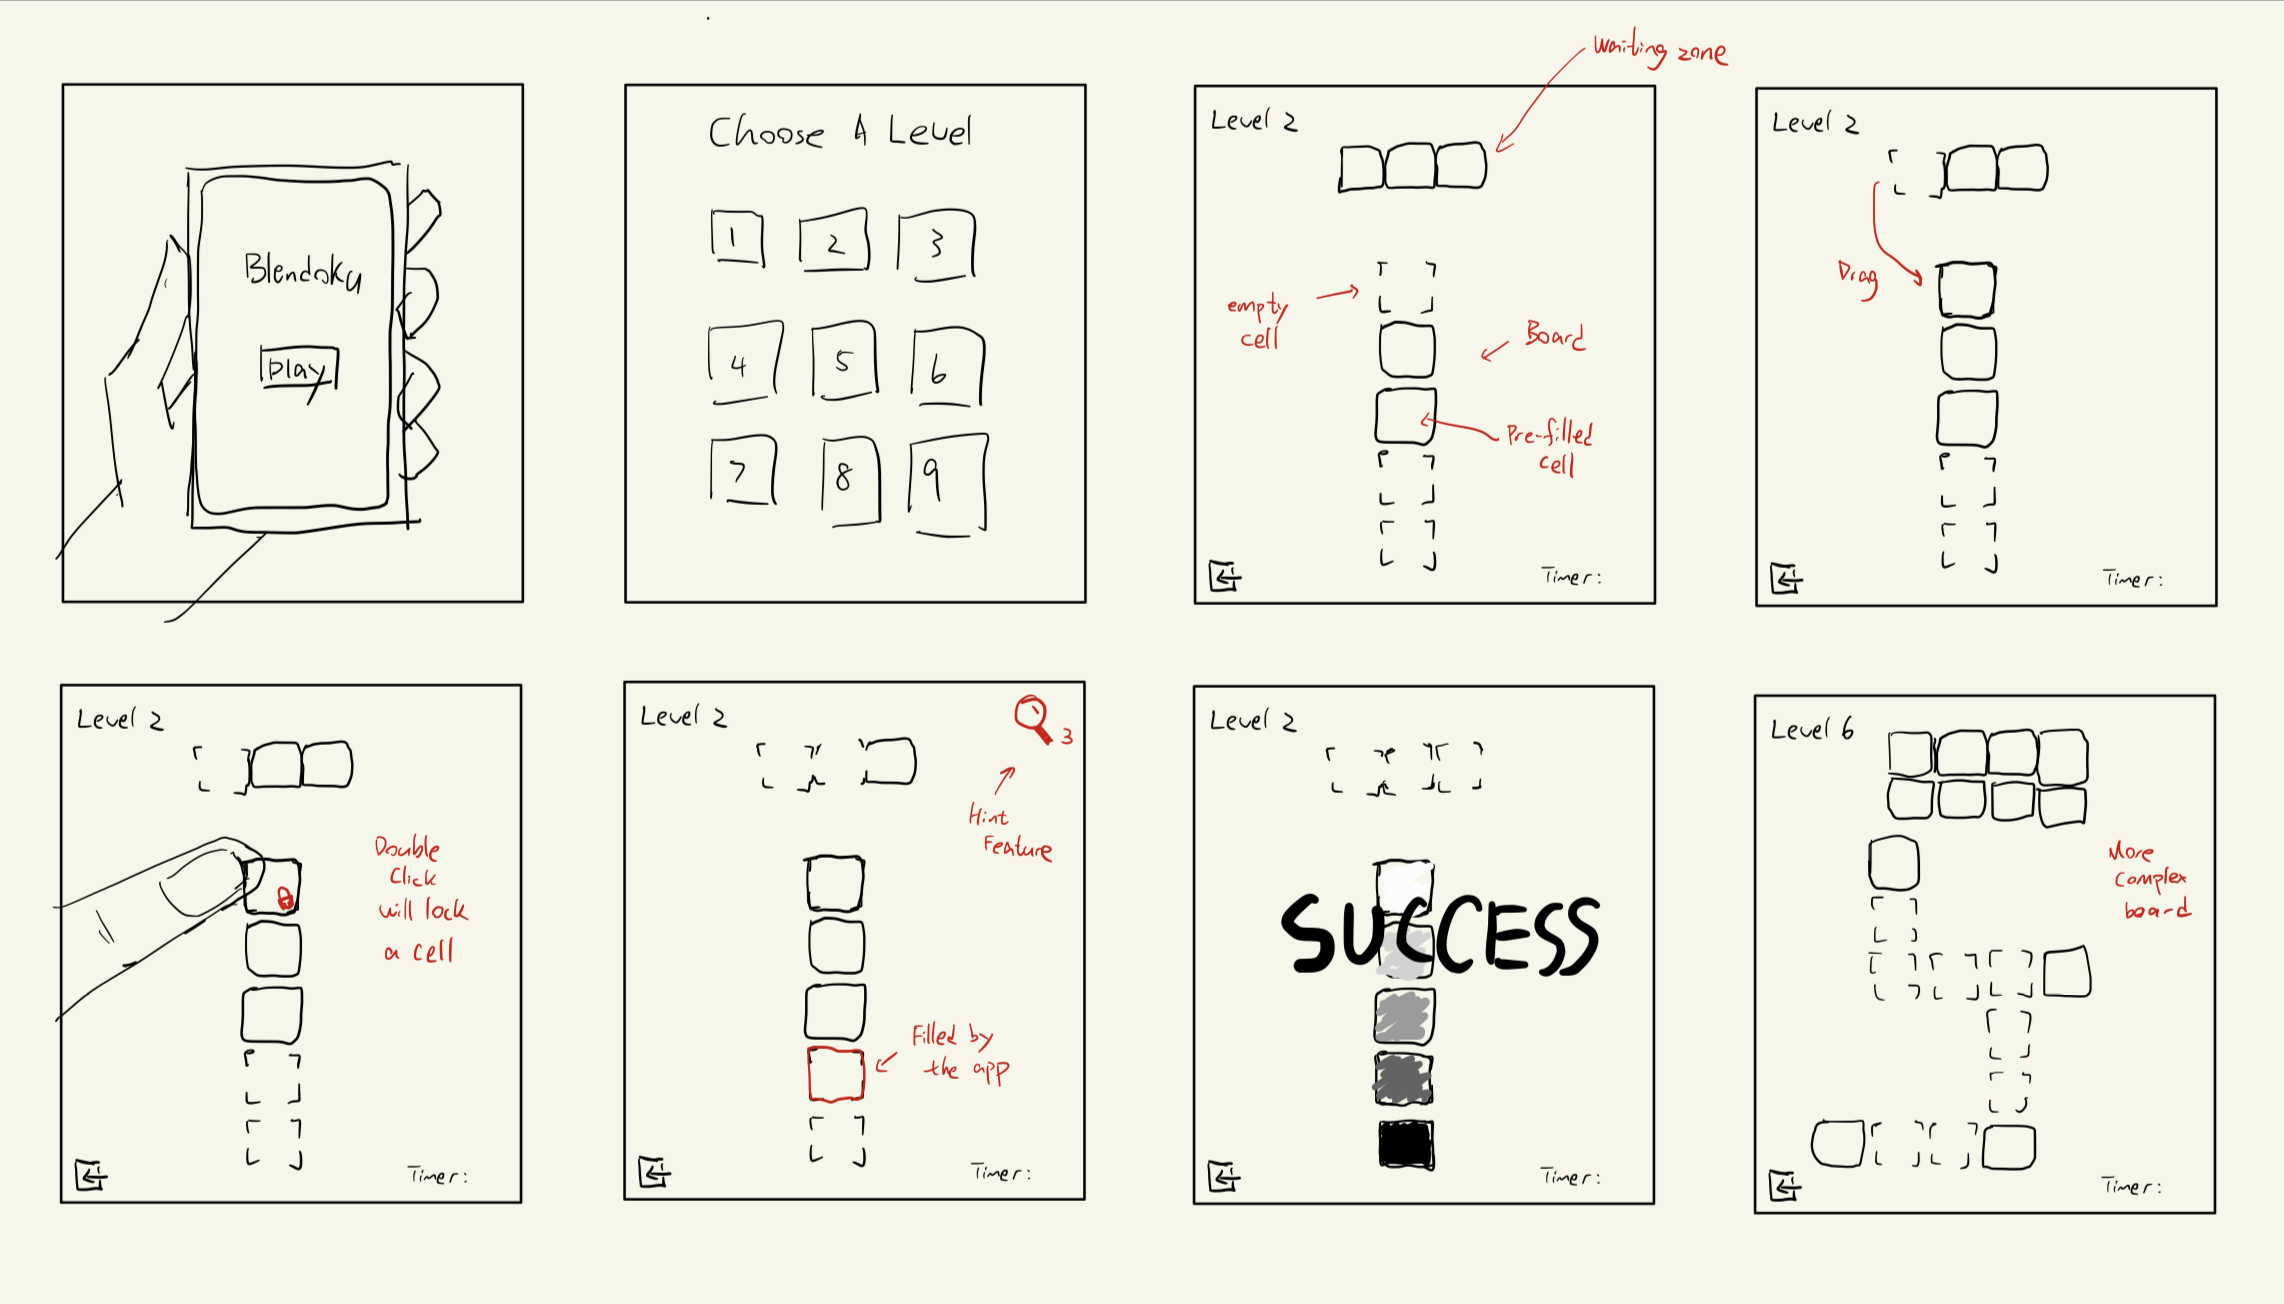 Blendoku
play
Choose A Level
1 2 3
4 5 6
7 8 9
waiting zone
Level 2
empty
cell
Board
Pre-filled
cell
Timer:
Level 2
Drag
Timer:
Level 2
Double
Click
will lock
a cell
Timer:
Level 2
3
Hint
Feature
Filled by
the app
Timer:
Level 2
SUCCESS
Timer:
Level 6
More
complex
board
Timer: